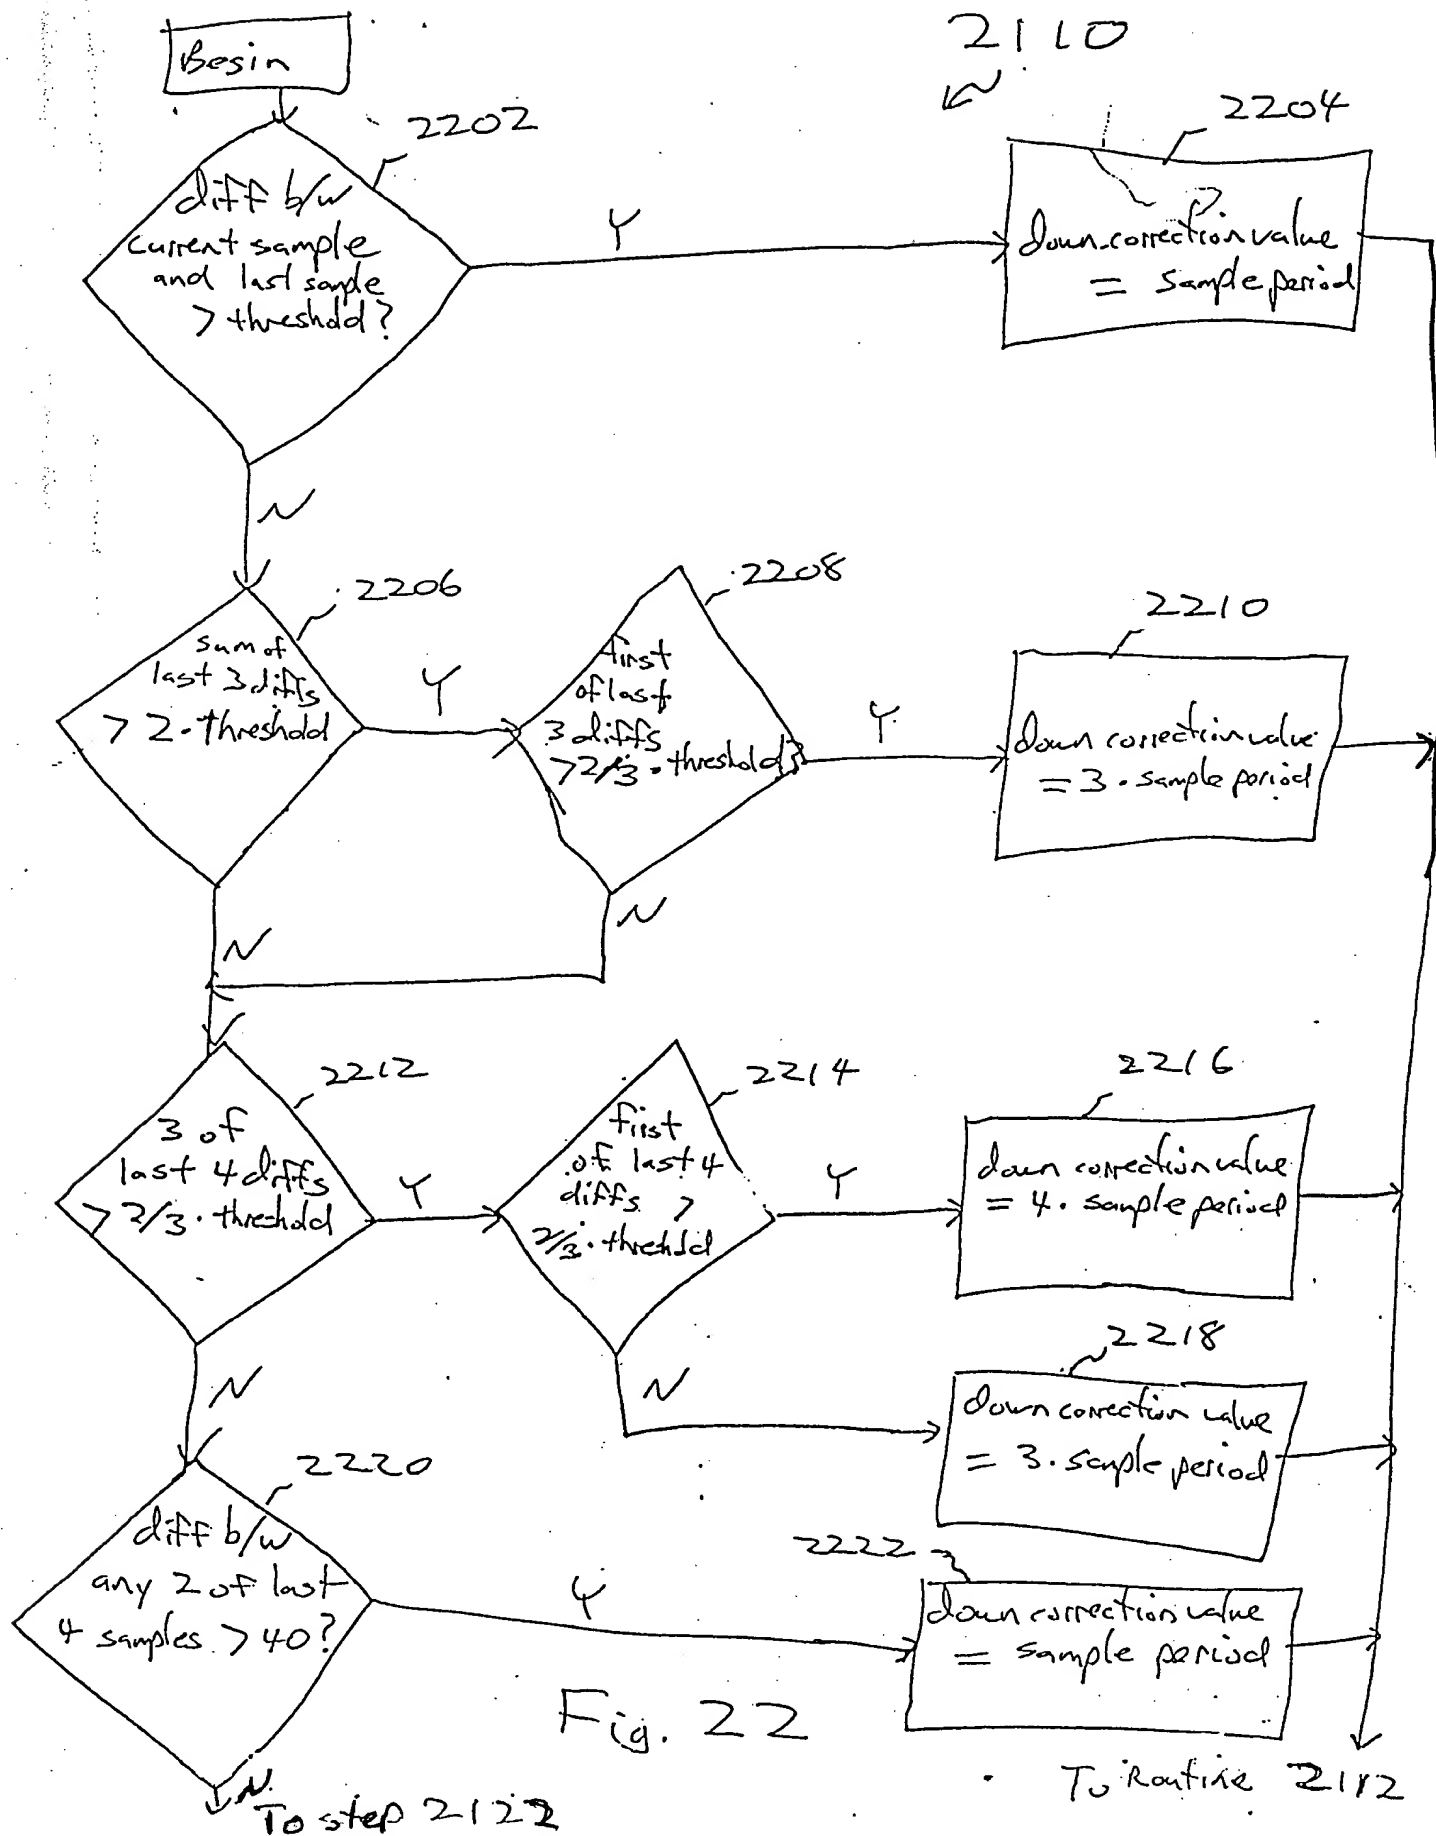 2110
Begin
2202
2204
diff b/w
current sample
and last sample
> threshold?
Y
down correction value
= sample period
N
2206
2208
2210
sum of
last 3 diffs
> 2·threshold
Y
first
of last
3 diffs
> 2/3·threshold?
Y
down correction value
= 3·sample period
N
N
2212
2214
2216
3 of
last 4 diffs
> 2/3·threshold
Y
first
of last 4
diffs >
2/3·threshold
Y
down correction value
= 4·sample period
N
N
2218
down correction value
= 3·sample period
2220
diff b/w
any 2 of last
4 samples > 40?
Y
2222
down correction value
= sample period
Fig. 22
N
To step 2122
To Routine 2112